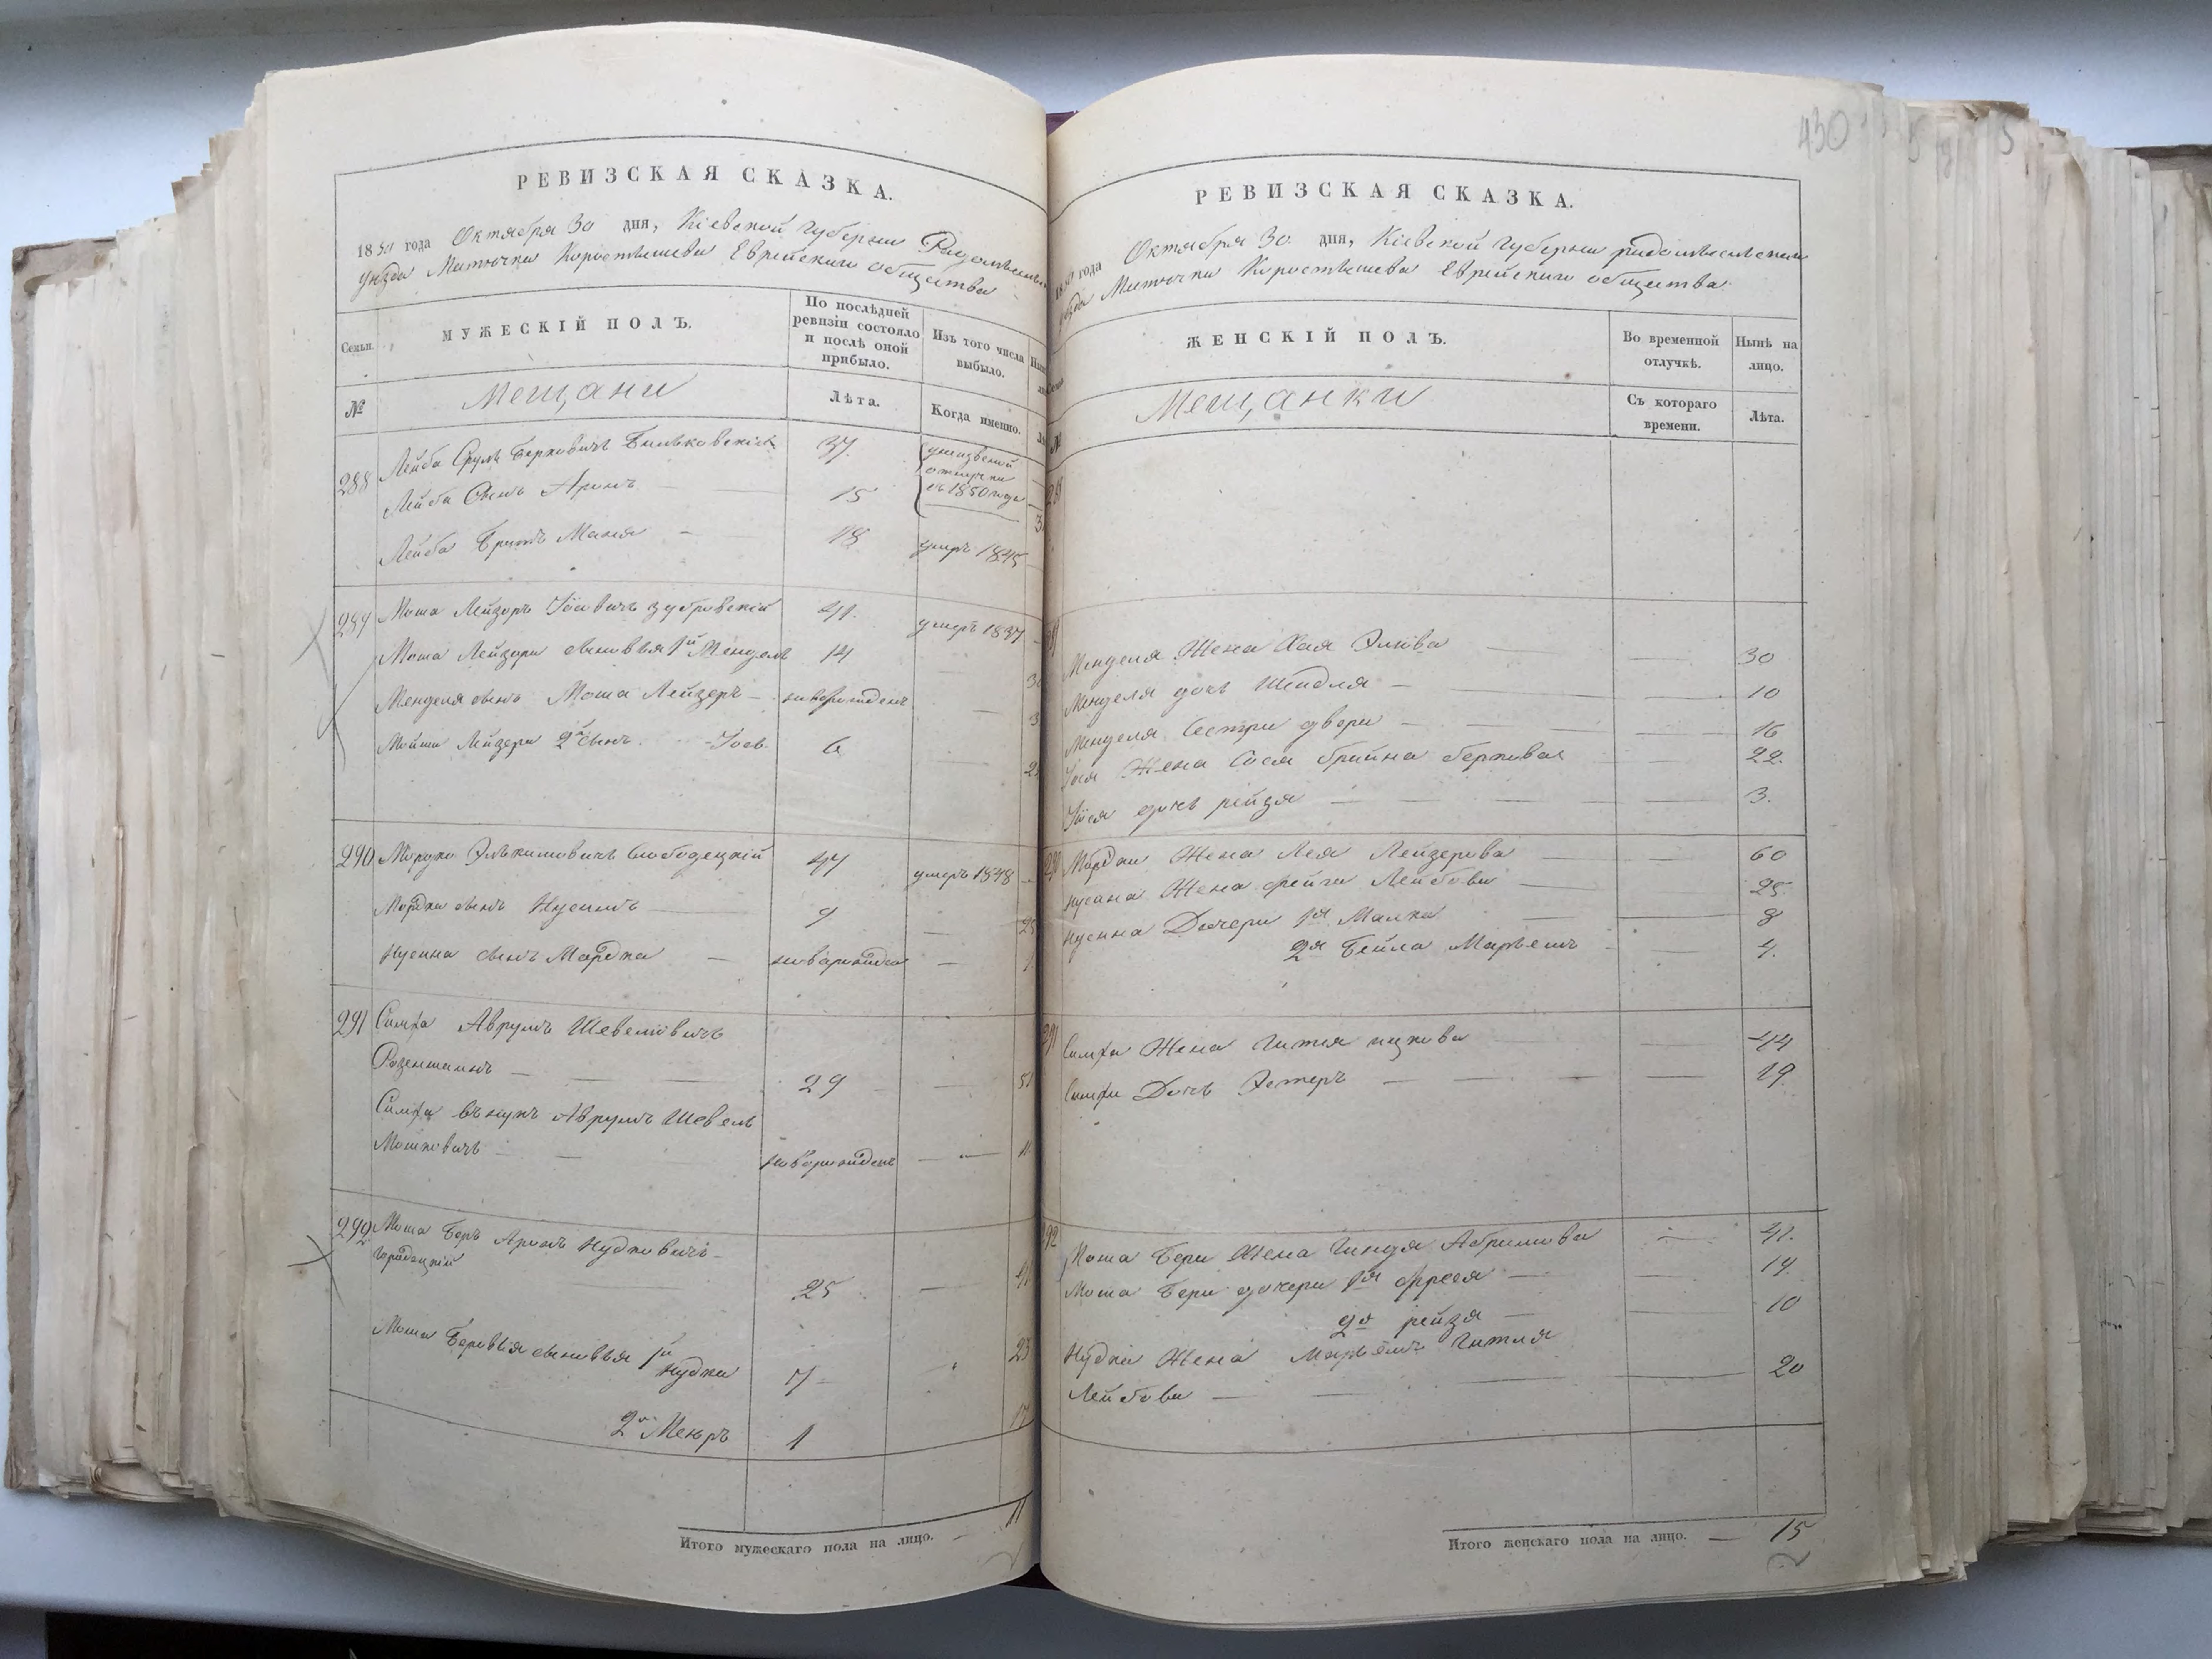 430
РЕВИЗСКАЯ СКАЗКА.
1850 года Октября 30 дня, Кіевской Губерніи Радомысльск
уезда Мѣстечка Коростышева Еврейскаго общества
Семьи.
МУЖЕСКІЙ ПОЛЪ.
По послѣдней ревизіи состояло и послѣ оной прибыло.
Изъ того числа выбыло.
№
Мещани
Лѣта.
Когда именно.
288 Лейба Сруль Берковичъ 37.
отлучки
съ 1850 года
Лейба Сынъ Аронъ 15
Лейба Братъ 18 умеръ 1845
289 Моша Лейзоръ Іосевичъ Зубровскій 41. умеръ 1837
Моша Лейзора сыновья 1й Мендель 14
Менделя сынъ Моша Лейзеръ новорожденъ
Мошка Лейзера 2й сынъ Іось 6
290 Мордко Элькимовичъ Слободецкій 47 умеръ 1848
Мордка сынъ Нусинъ 9
Нусина сынъ Мордка новорожденъ
291 Симха Аврумъ Шевелювичъ
Розентинъ 29 51
Симха внукъ Аврумъ Шевель
Мошковичъ новорожденъ 11
292 Моша Беръ Аронъ Нудковичъ
Городецкій 25
Моша Беровья сыновья 1й
Нудка 7 23
2й Меиръ 1 17
Итого мужескаго пола на лицо. 11
РЕВИЗСКАЯ СКАЗКА.
1850 года Октября 30 дня, Кіевской Губерніи Радомысльскаго
уезда Мѣстечка Коростышева Еврейскаго общества
ЖЕНСКІЙ ПОЛЪ.
Во временной отлучкѣ.
Нынѣ на лицо.
№
Мещанки
Съ котораго времени.
Лѣта.
Менделя Жена Хая 30
Менделя дочь Шейдля 10
Менделя Сестра двера 16
Іося Жена Сося Брайна Беркова 22.
Іося дочь рейзя 3.
290 Мордки Жена Лея Лейзерова 60
Нусина Жена фейга Лейбова 25.
Нусина Дочери 1я Малка 8
2я Бейла Марьемъ 4.
291 Симха Жена Гитля ицкова 44
Симхи Дочь Эстеръ 19.
292 Моша Бера Жена Гиндя Абрамова 41.
Моша Бера дочери 1я фрося 14.
2я рейзя 10
Нудки Жена Марьямъ Гитля
Лейбова 20
Итого женскаго пола на лицо. 15